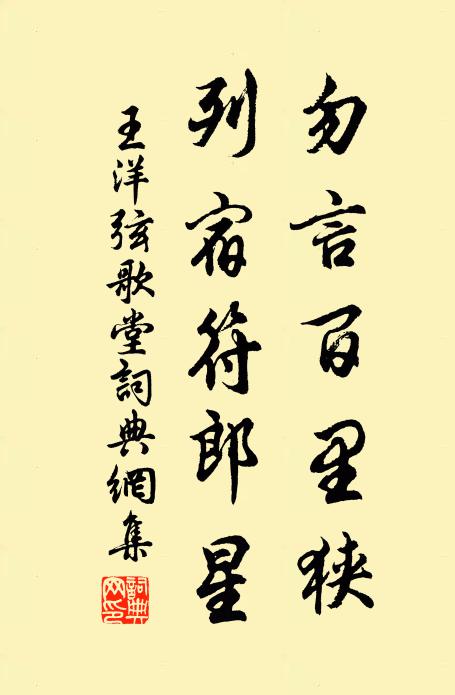 勿言百里狹
列宿符郎星
王洋弦歌堂詞典網集
詞典网印